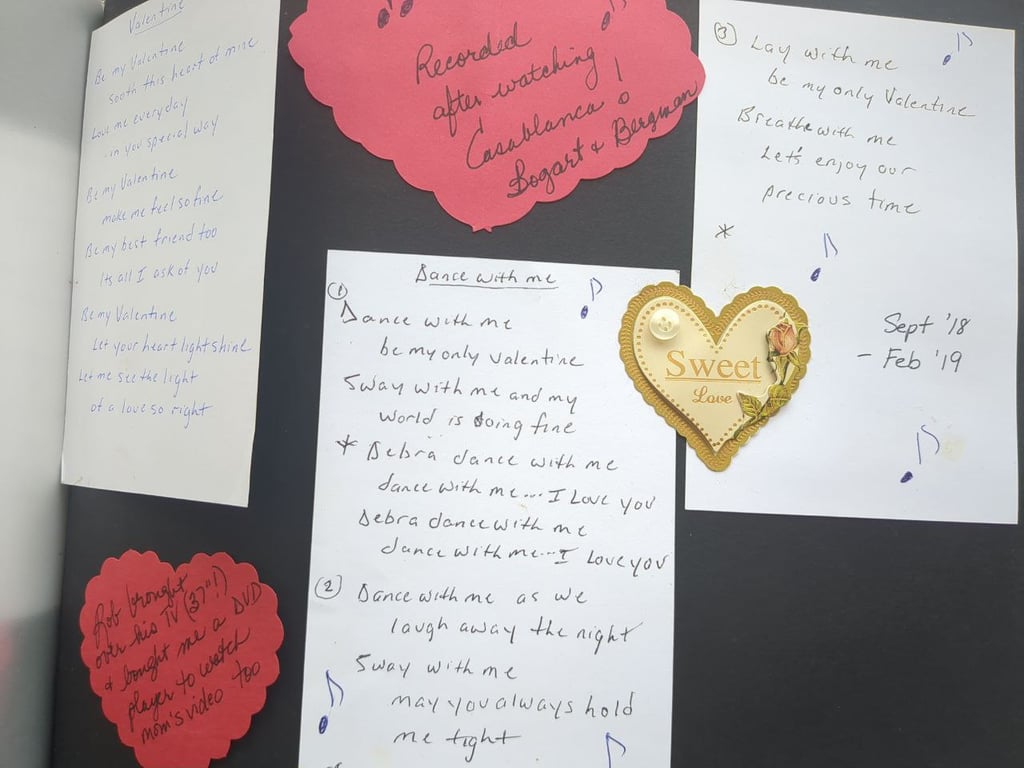 Valentine
Be my Valentine
sooth this heart of mine
Love me everyday
in you special way
Be my Valentine
make me feel so fine
Be my best friend too
Its all I ask of you
Be my Valentine
Let your heart light shine
Let me see the light
of a love so right
Recorded
after watching
Casablanca!
Bogart & Bergman
Rob brought
over his TV (37"!)
& bought me a DVD
player to watch
mom's video too
Dance with me
(1)
Dance with me
be my only valentine
Sway with me and my
world is doing fine
* Debra dance with me
dance with me... I Love you
Debra dance with me
dance with me... I love you
(2) Dance with me as we
laugh away the night
Sway with me
may you always hold
me tight
Sweet
Love
(3) Lay with me
be my only Valentine
Breathe with me
Let's enjoy our
precious time
*
Sept '18
- Feb '19